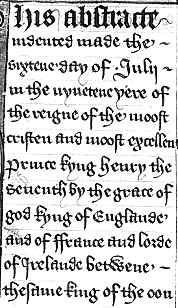 This abstracte
indented made the
sixtene day of July
in the nynetene yere of
the reigne of the moost
cristen and moost excellent
Prince kyng Henry the
seuenth by the grace of
god kyng of Englande
and of ffrance and lorde
of Irelande betwene
thesame king of the oon